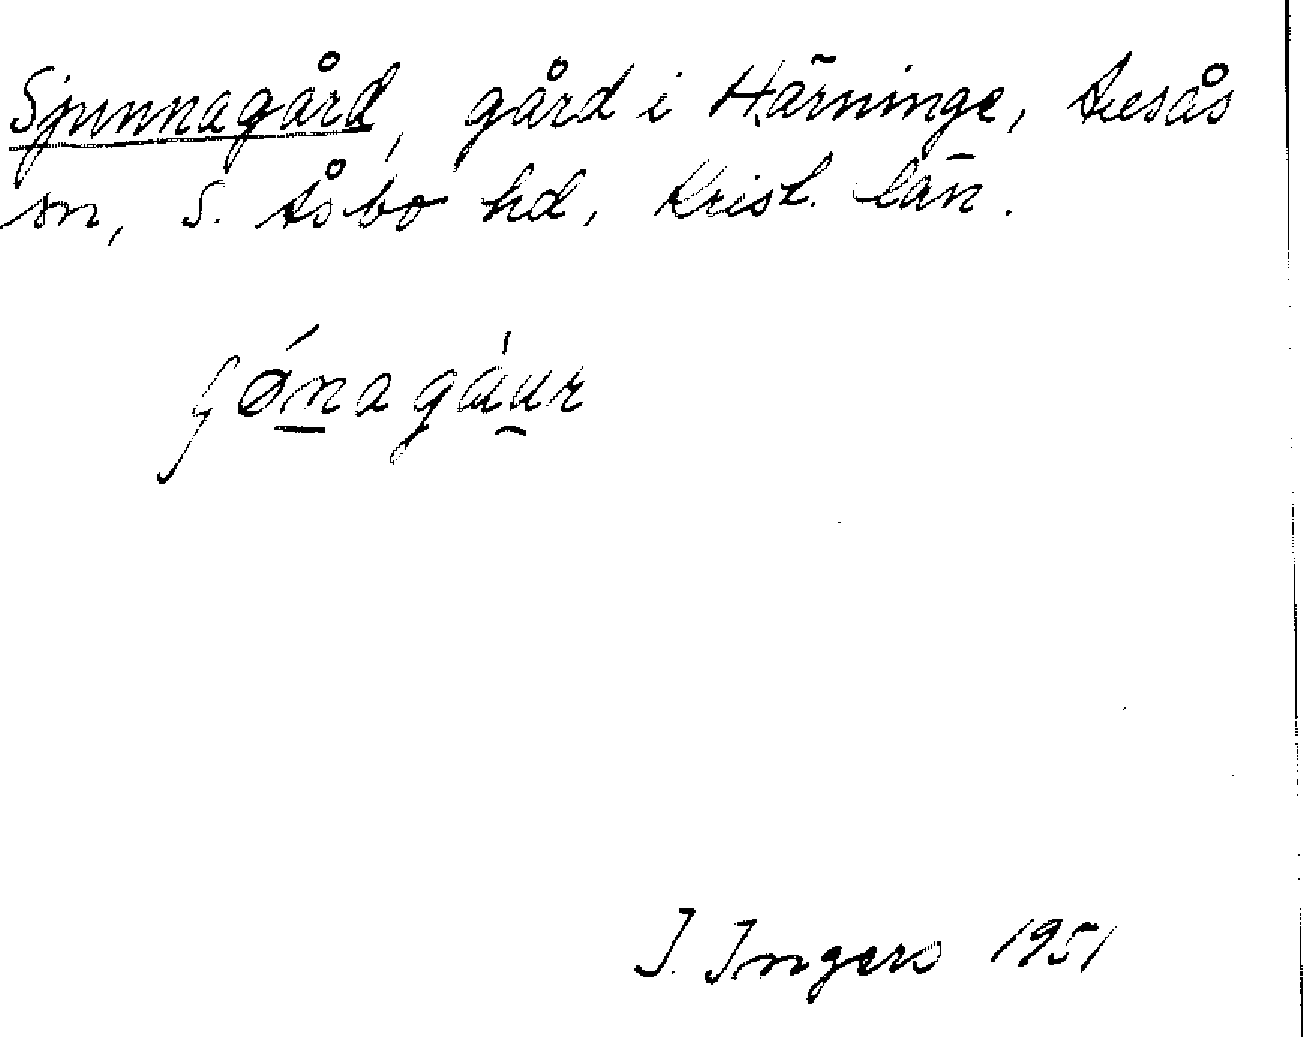 Sjunnagård, gård i Härninge, Åsås
sn, S. Åsbo hd, Krist. län.
gáur
I. Ingers 1951